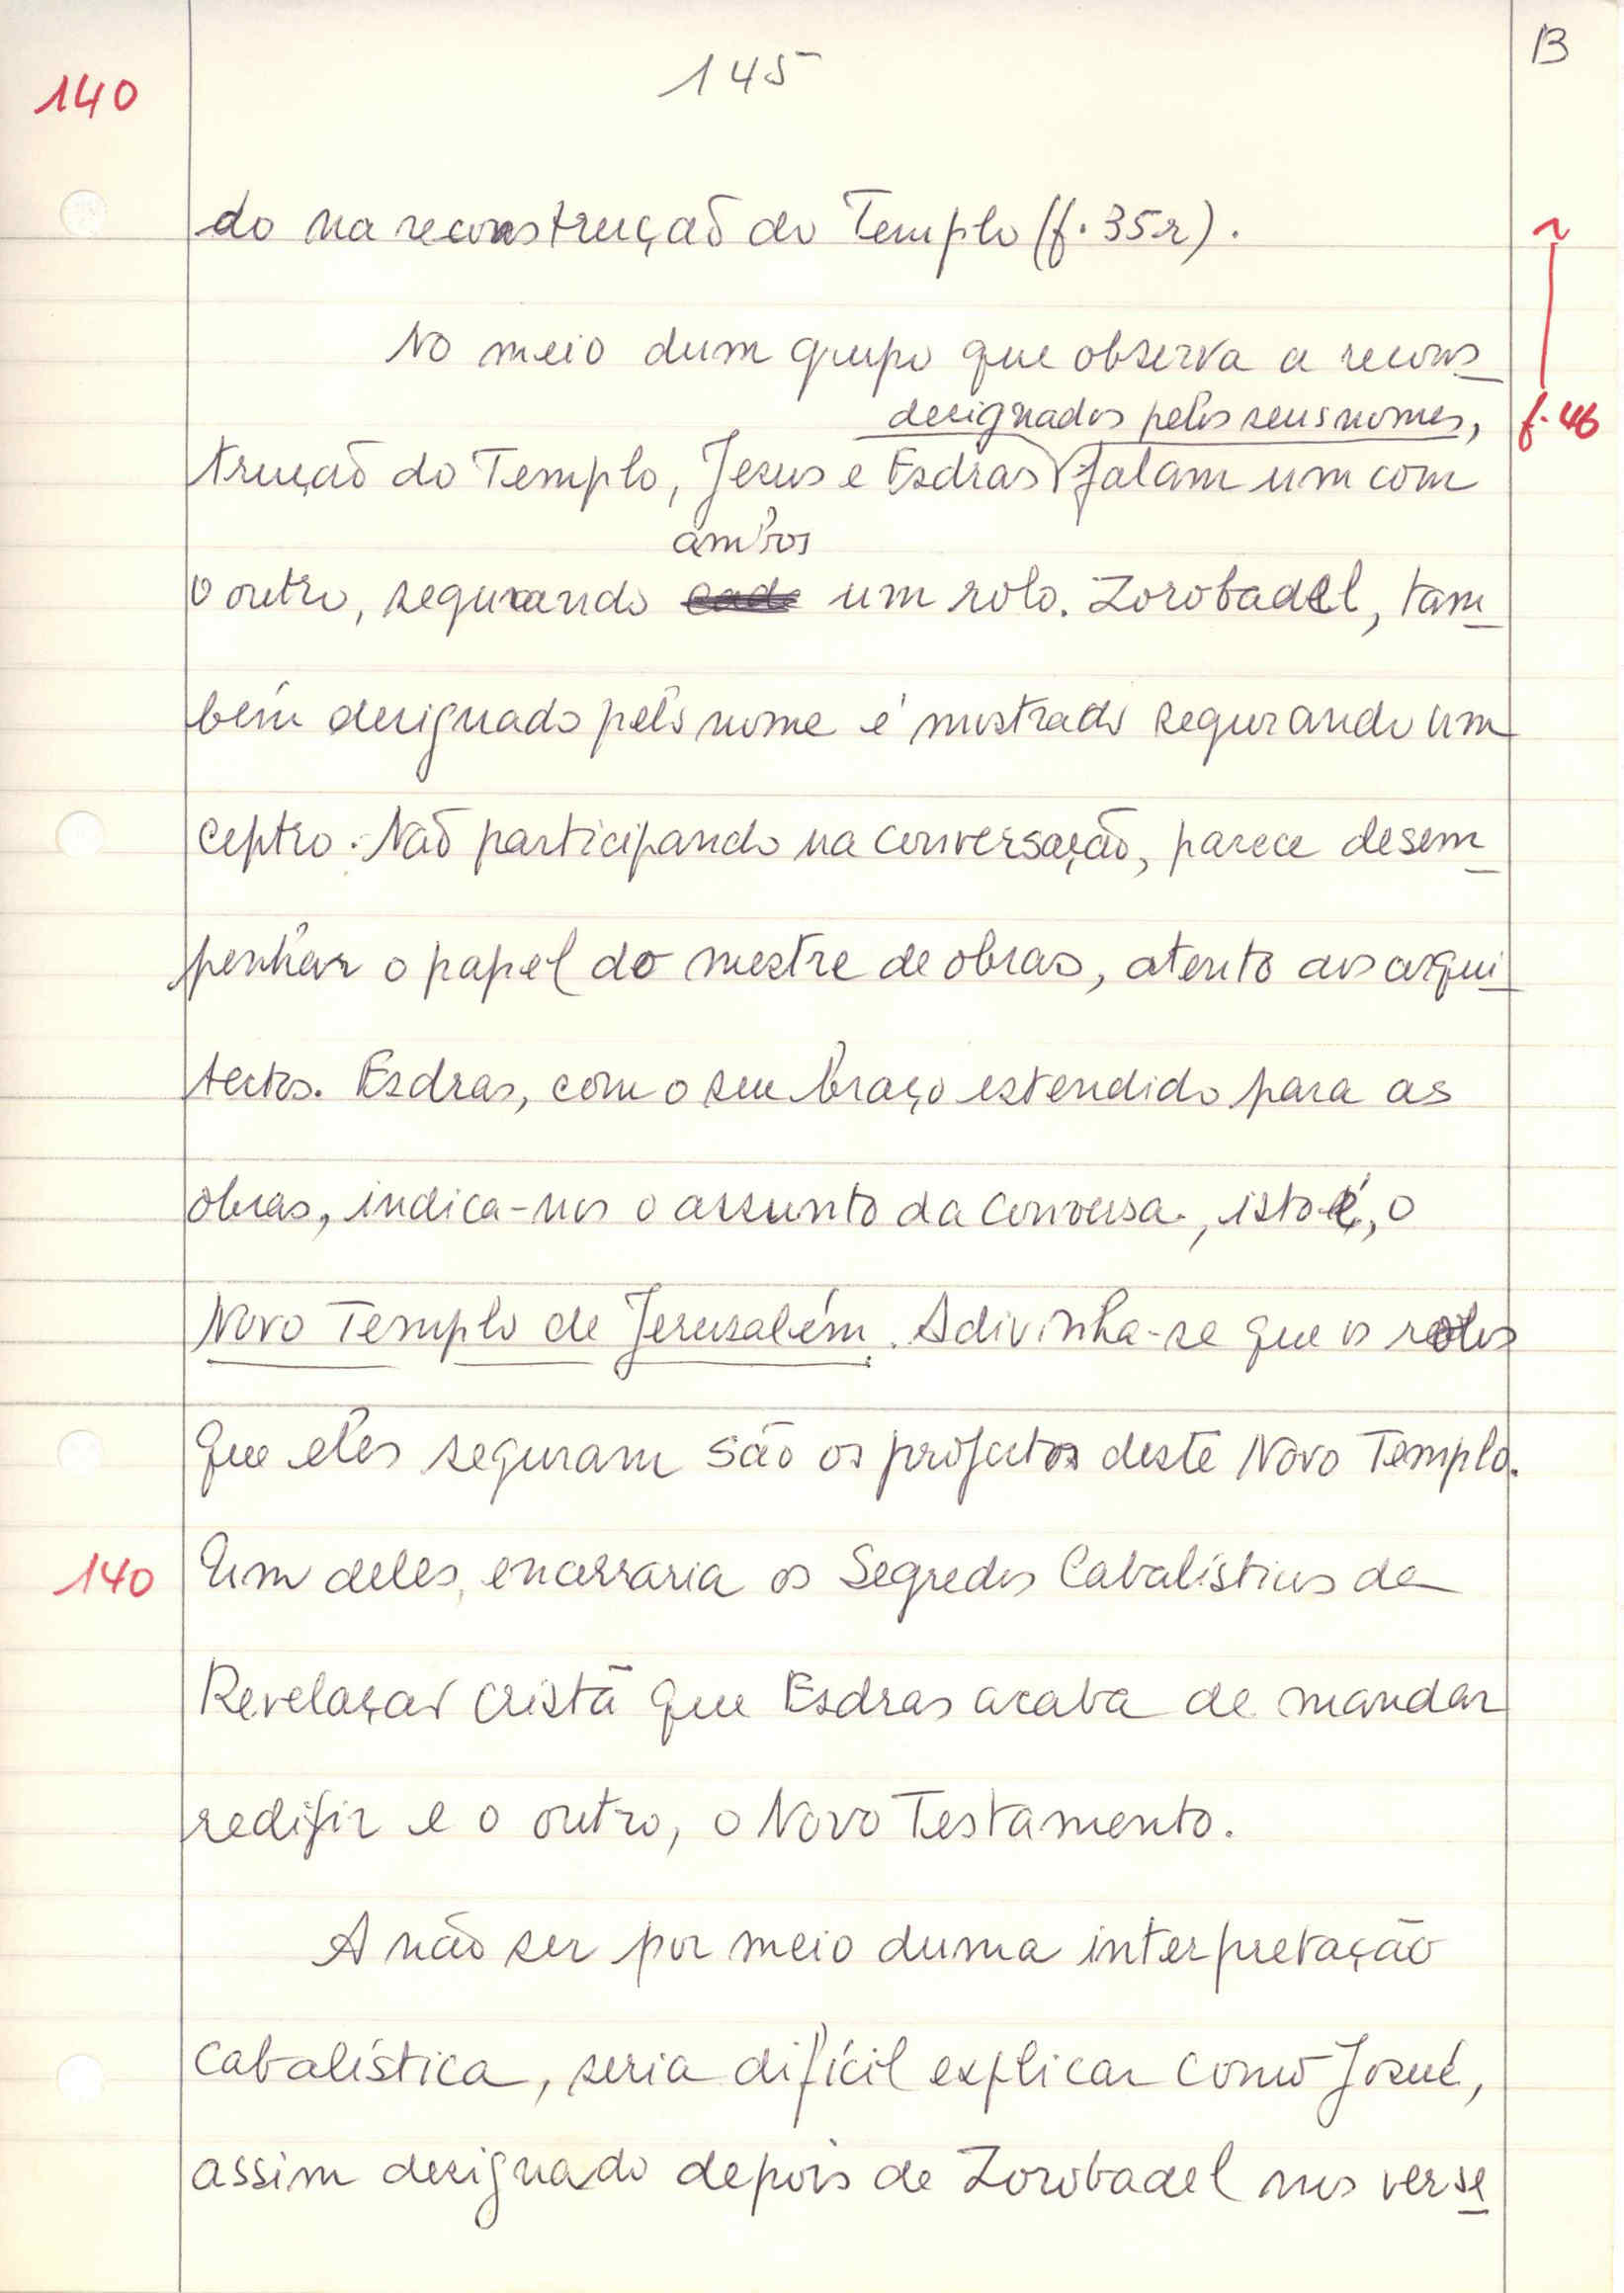 145
B
140
do na reconstrução do Templo (f. 35r).
No meio dum grupo que observa a recons
designados pelos seus nomes,
f. 46
trução do Templo, Jesus e Esdras falam um com
ambos
o outro, segurando cada um rolo. Zorobadel, tam
bém designado pelo nome é mostrado segurando um
ceptro. Não participando na conversação, parece desem
penhar o papel do mestre de obras, atento aos arqui
tectos. Esdras, com o seu braço estendido para as
obras, indica-nos o assunto da conversa, isto é, o
Novo Templo de Jerusalém. Adivinha-se que os rolos
que eles seguram são os projectos deste Novo Templo.
140
Um deles, encerraria os Segredos Cabalísticos da
Revelação cristã que Esdras acaba de mandar
redigir e o outro, o Novo Testamento.
A não ser por meio duma interpretação
cabalística, seria difícil explicar como Josué,
assim designado depois de Zorobadel nos verse